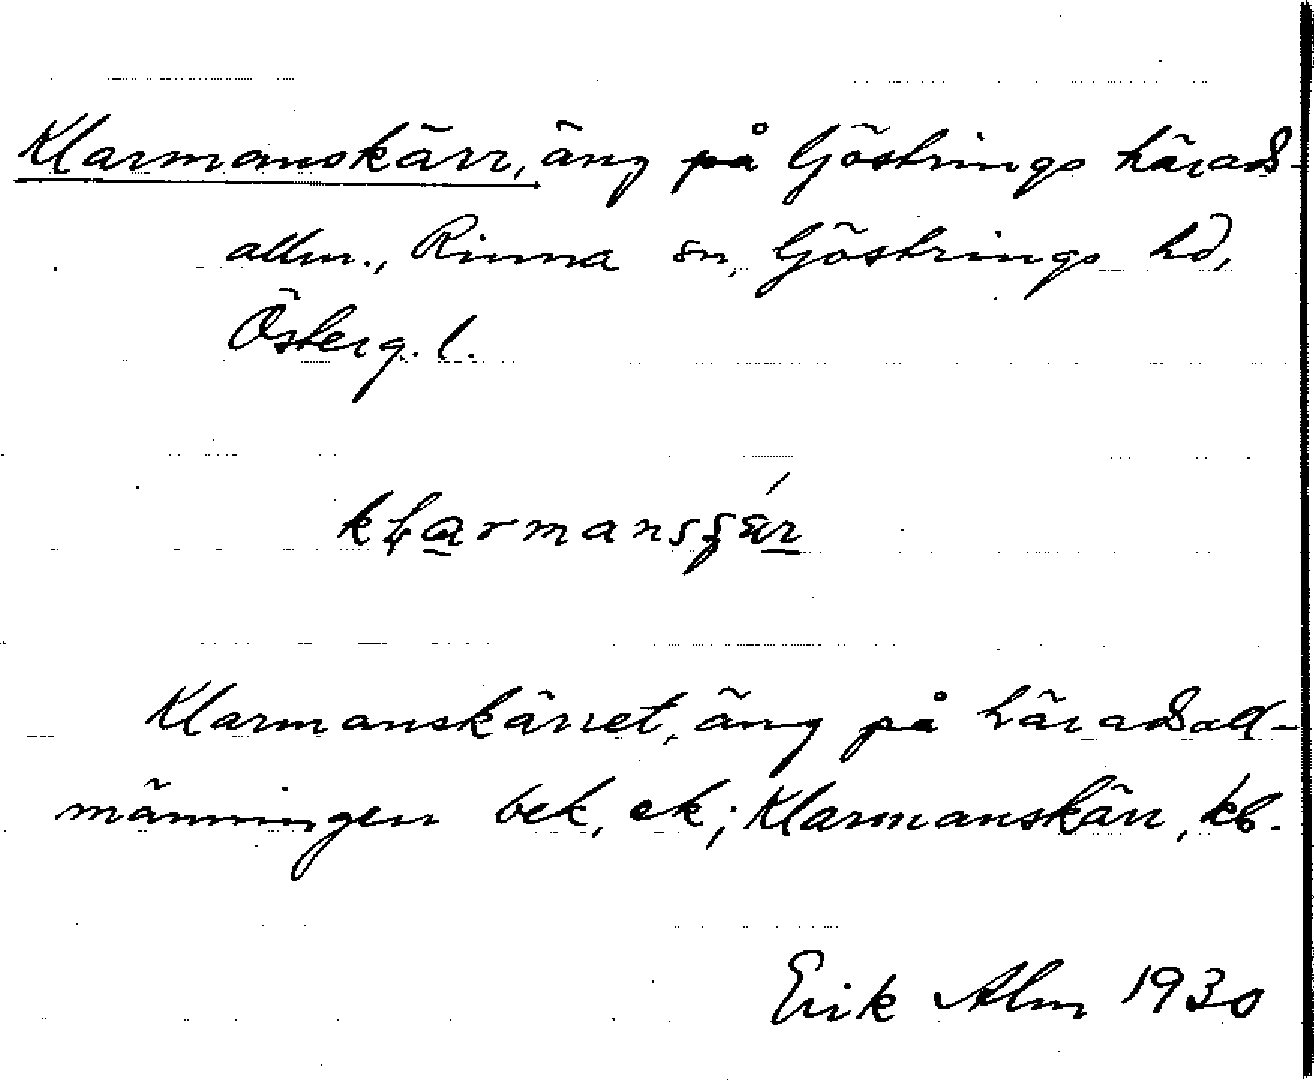 Klarmanskärr, äng på Göstrings härads-
allm., Rinna sn, Göstrings hd,
Österg. l.
Klarmanskärret, äng på häradsall-
männingen bek, ek; Klarmanskärr, kb.
Erik Alm 1930